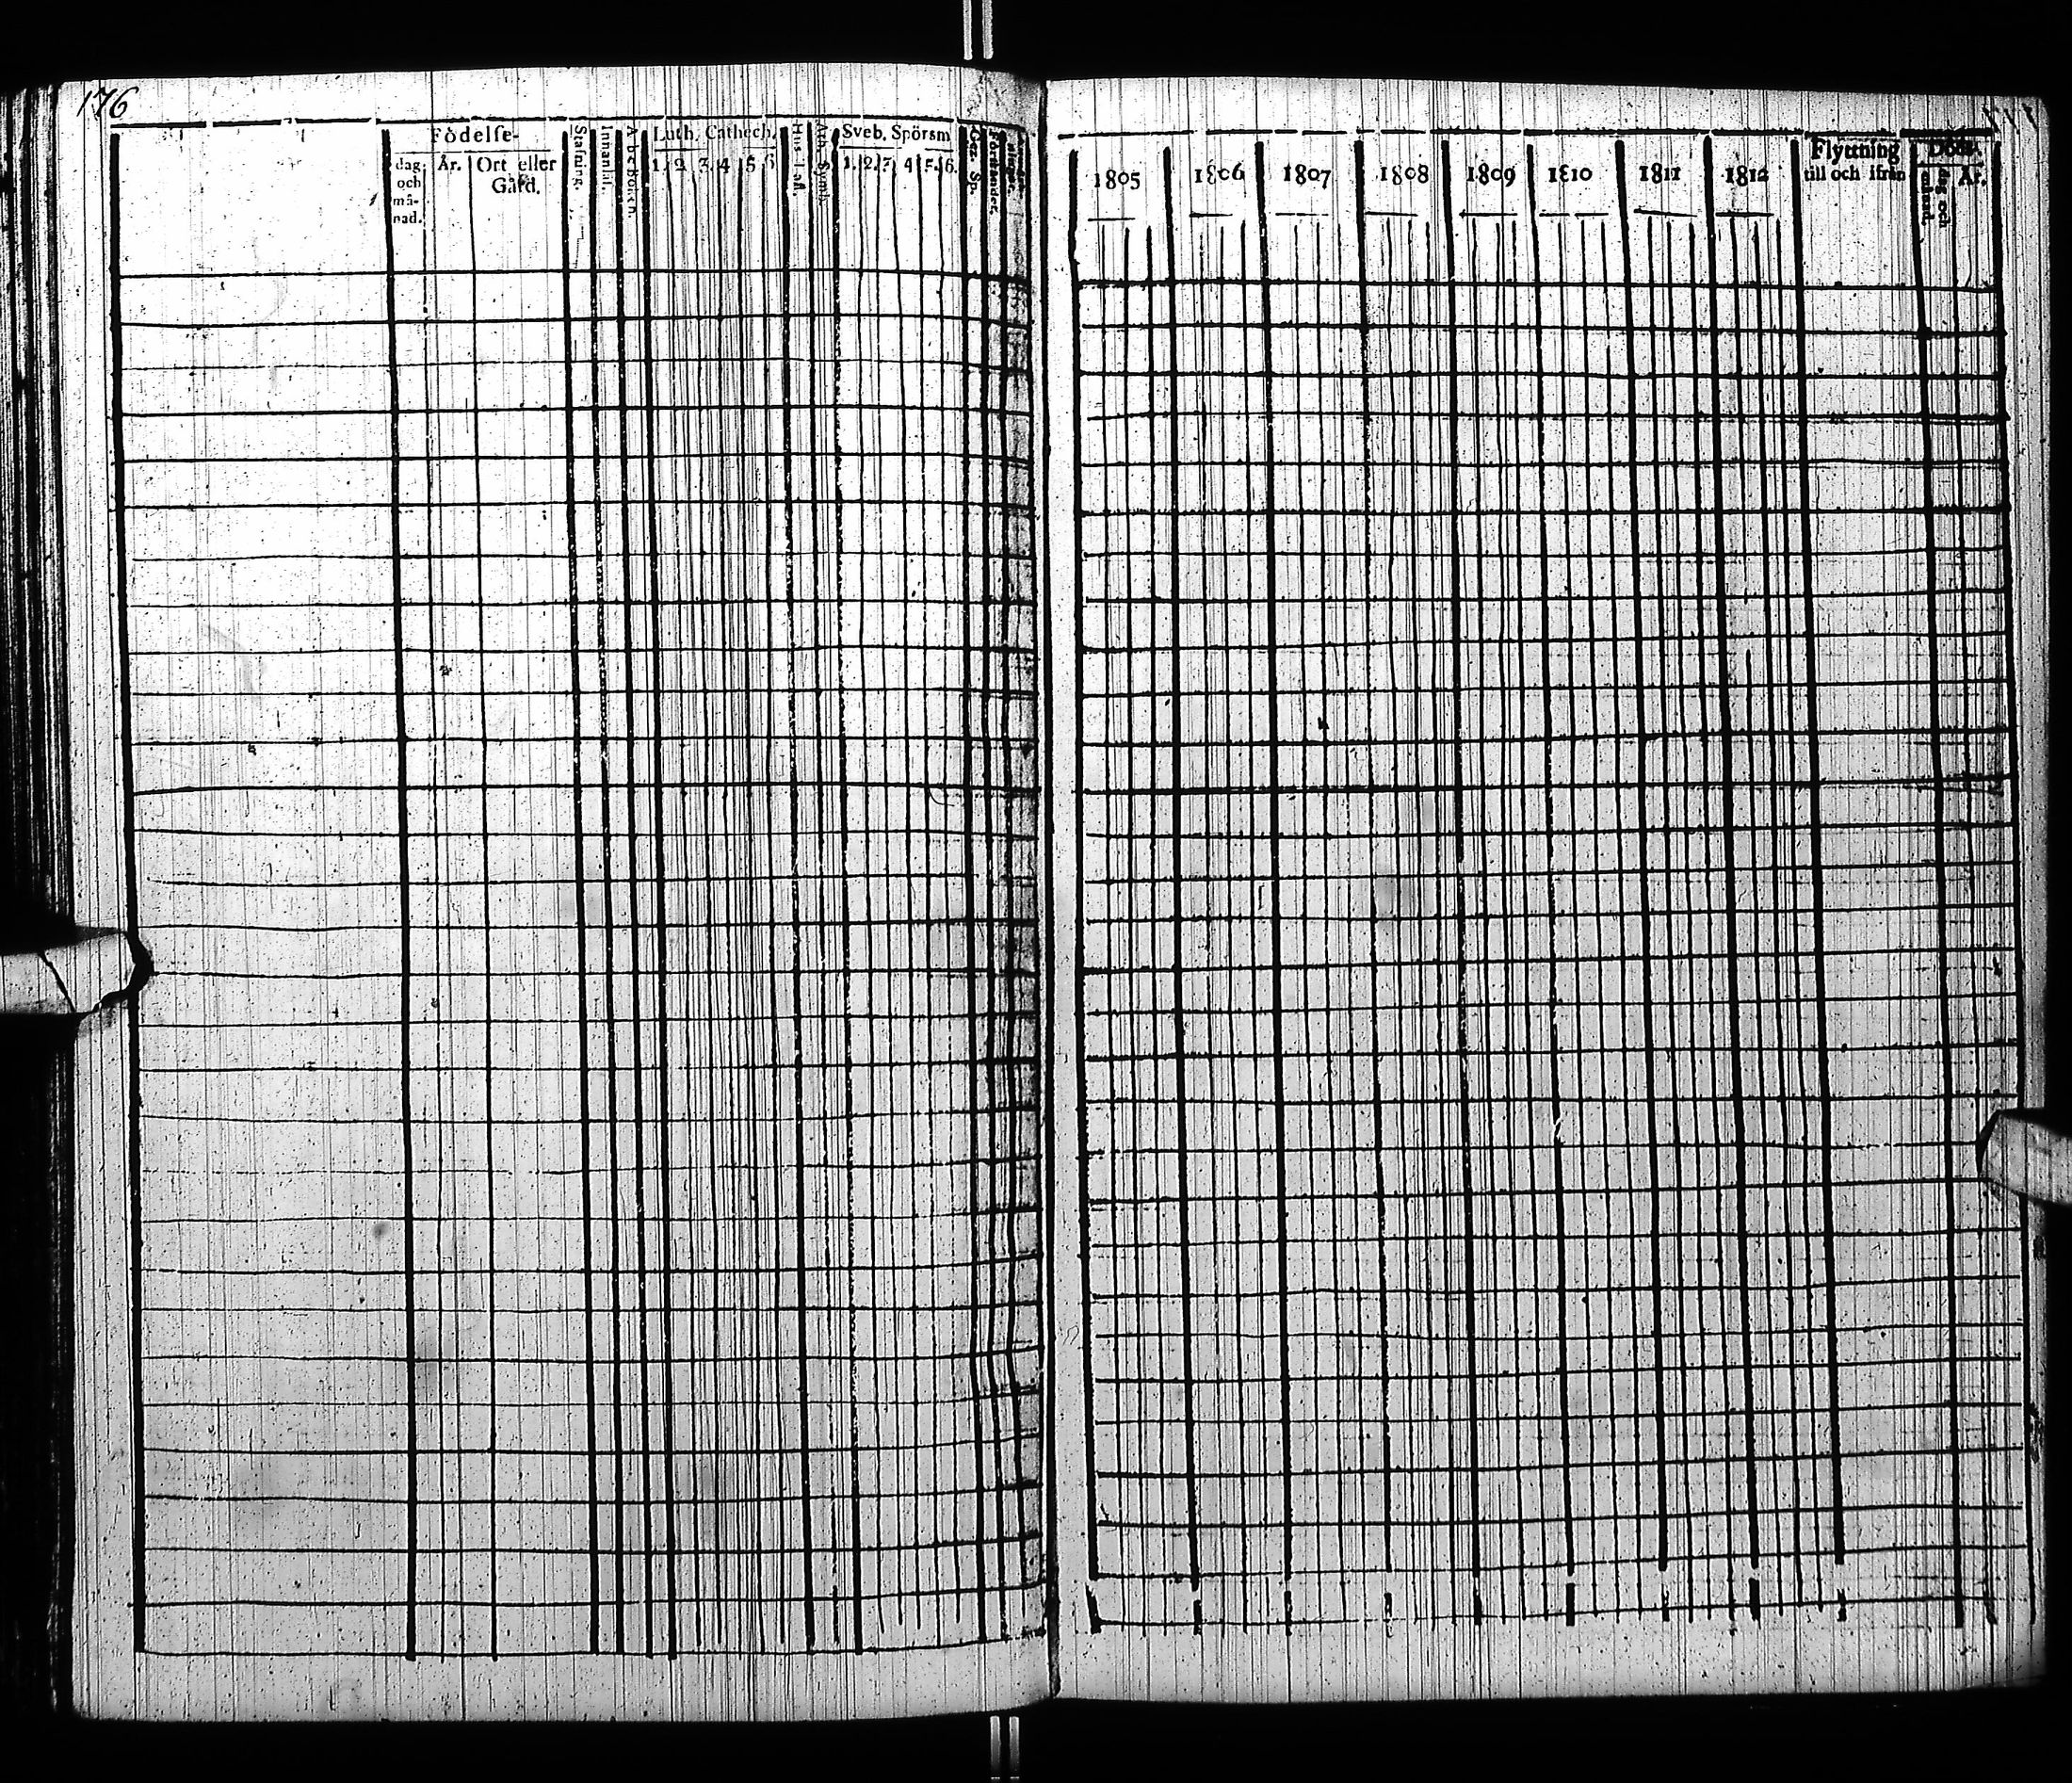 176
177
Födelſe-
dag och må-nad.
År.
Ort eller Gård.
Stafning.
Innanläſ.
A b c Boken.
Luth. Cathech.
1. 2. 3. 4 5 6
Hus-Tafl.
Ath. Symb.
Sveb. Spörsm
1. 2. 3. 4 5. 6.
Ger. Sp.
Förſtånder.
1805
1806
1807
1808
1809
1810
1811
1812
Flyttning till och ifrån
Döds-
dag och månad.
År.